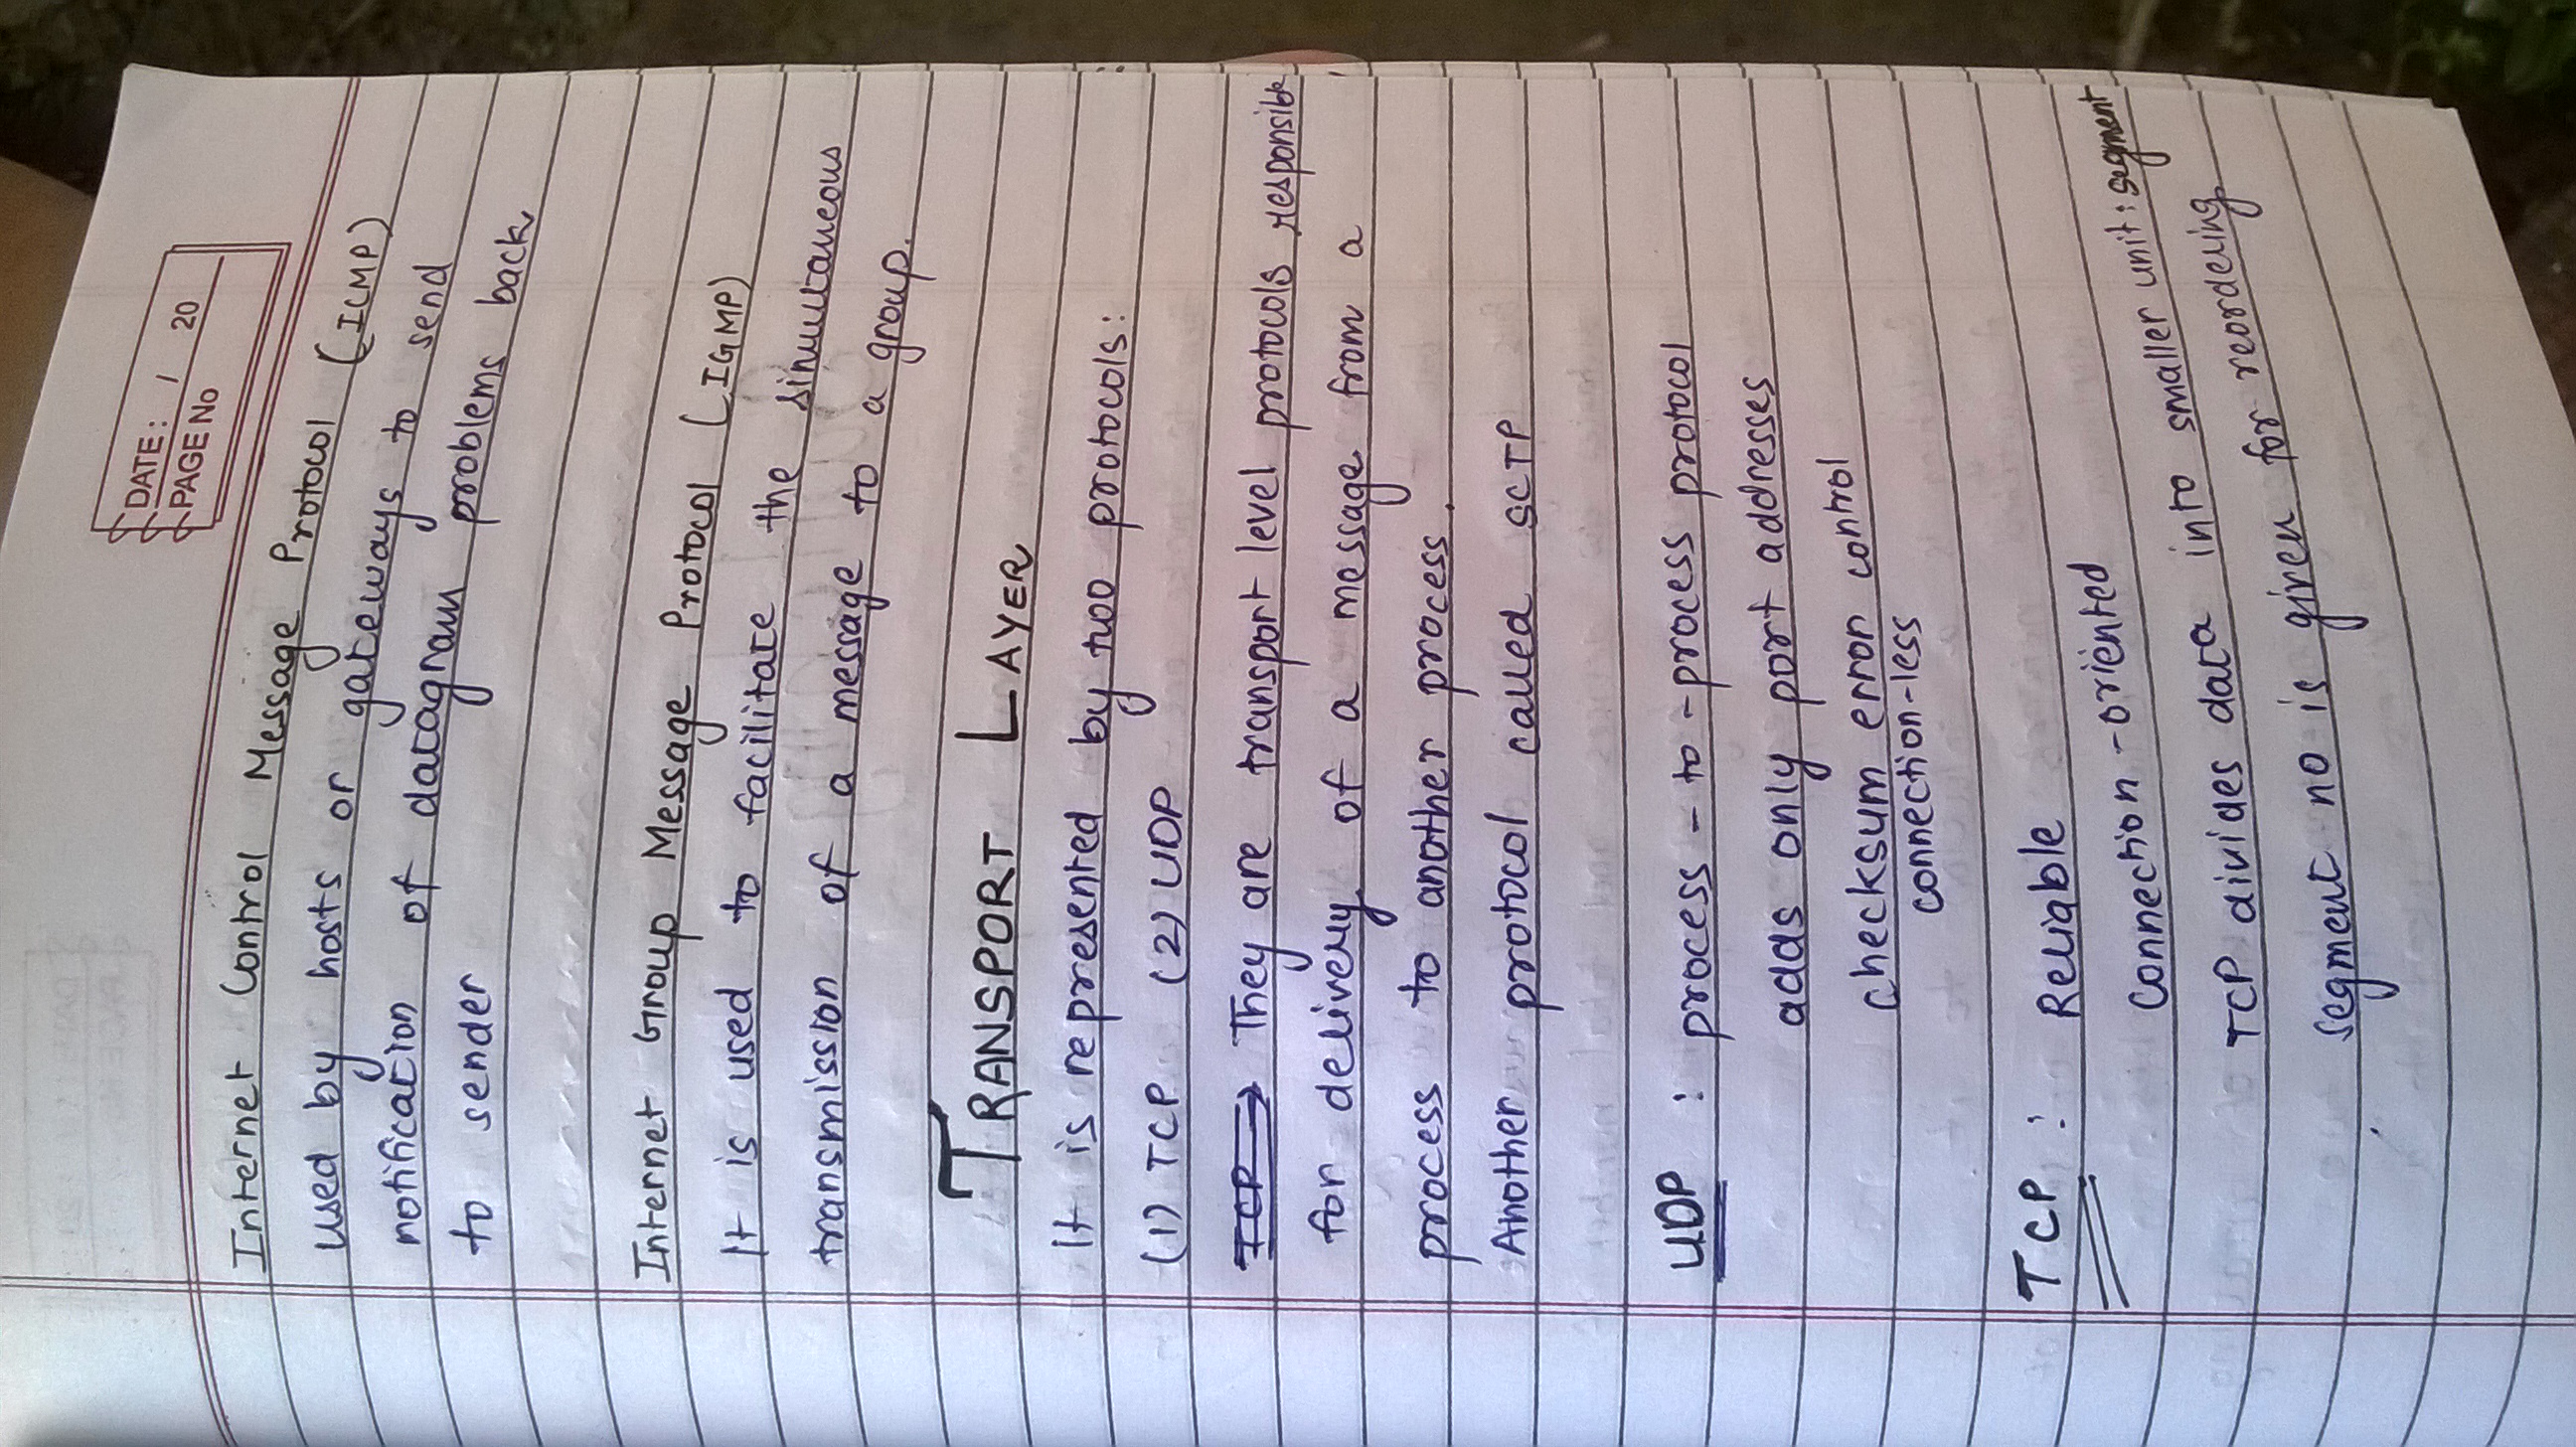 DATE: / 20
PAGE No
Internet Control Message Protocol (ICMP)
used by hosts or gateways to send
notification of datagram problems back
to sender
Internet Group Message Protocol (IGMP)
It is used to facilitate the simultaneous
transmission of a message to a group.
TRANSPORT LAYER
It is represented by two protocols:
(1) TCP (2) UDP
TCP They are transport level protocols responsible
for delivery of a message from a
process to another process.
Another protocol called SCTP
UDP : process-to-process protocol
adds only port addresses
checksum error control
connection-less
TCP : Reliable
Connection-oriented
TCP divides data into smaller unit: segment
segment no is given for reordering